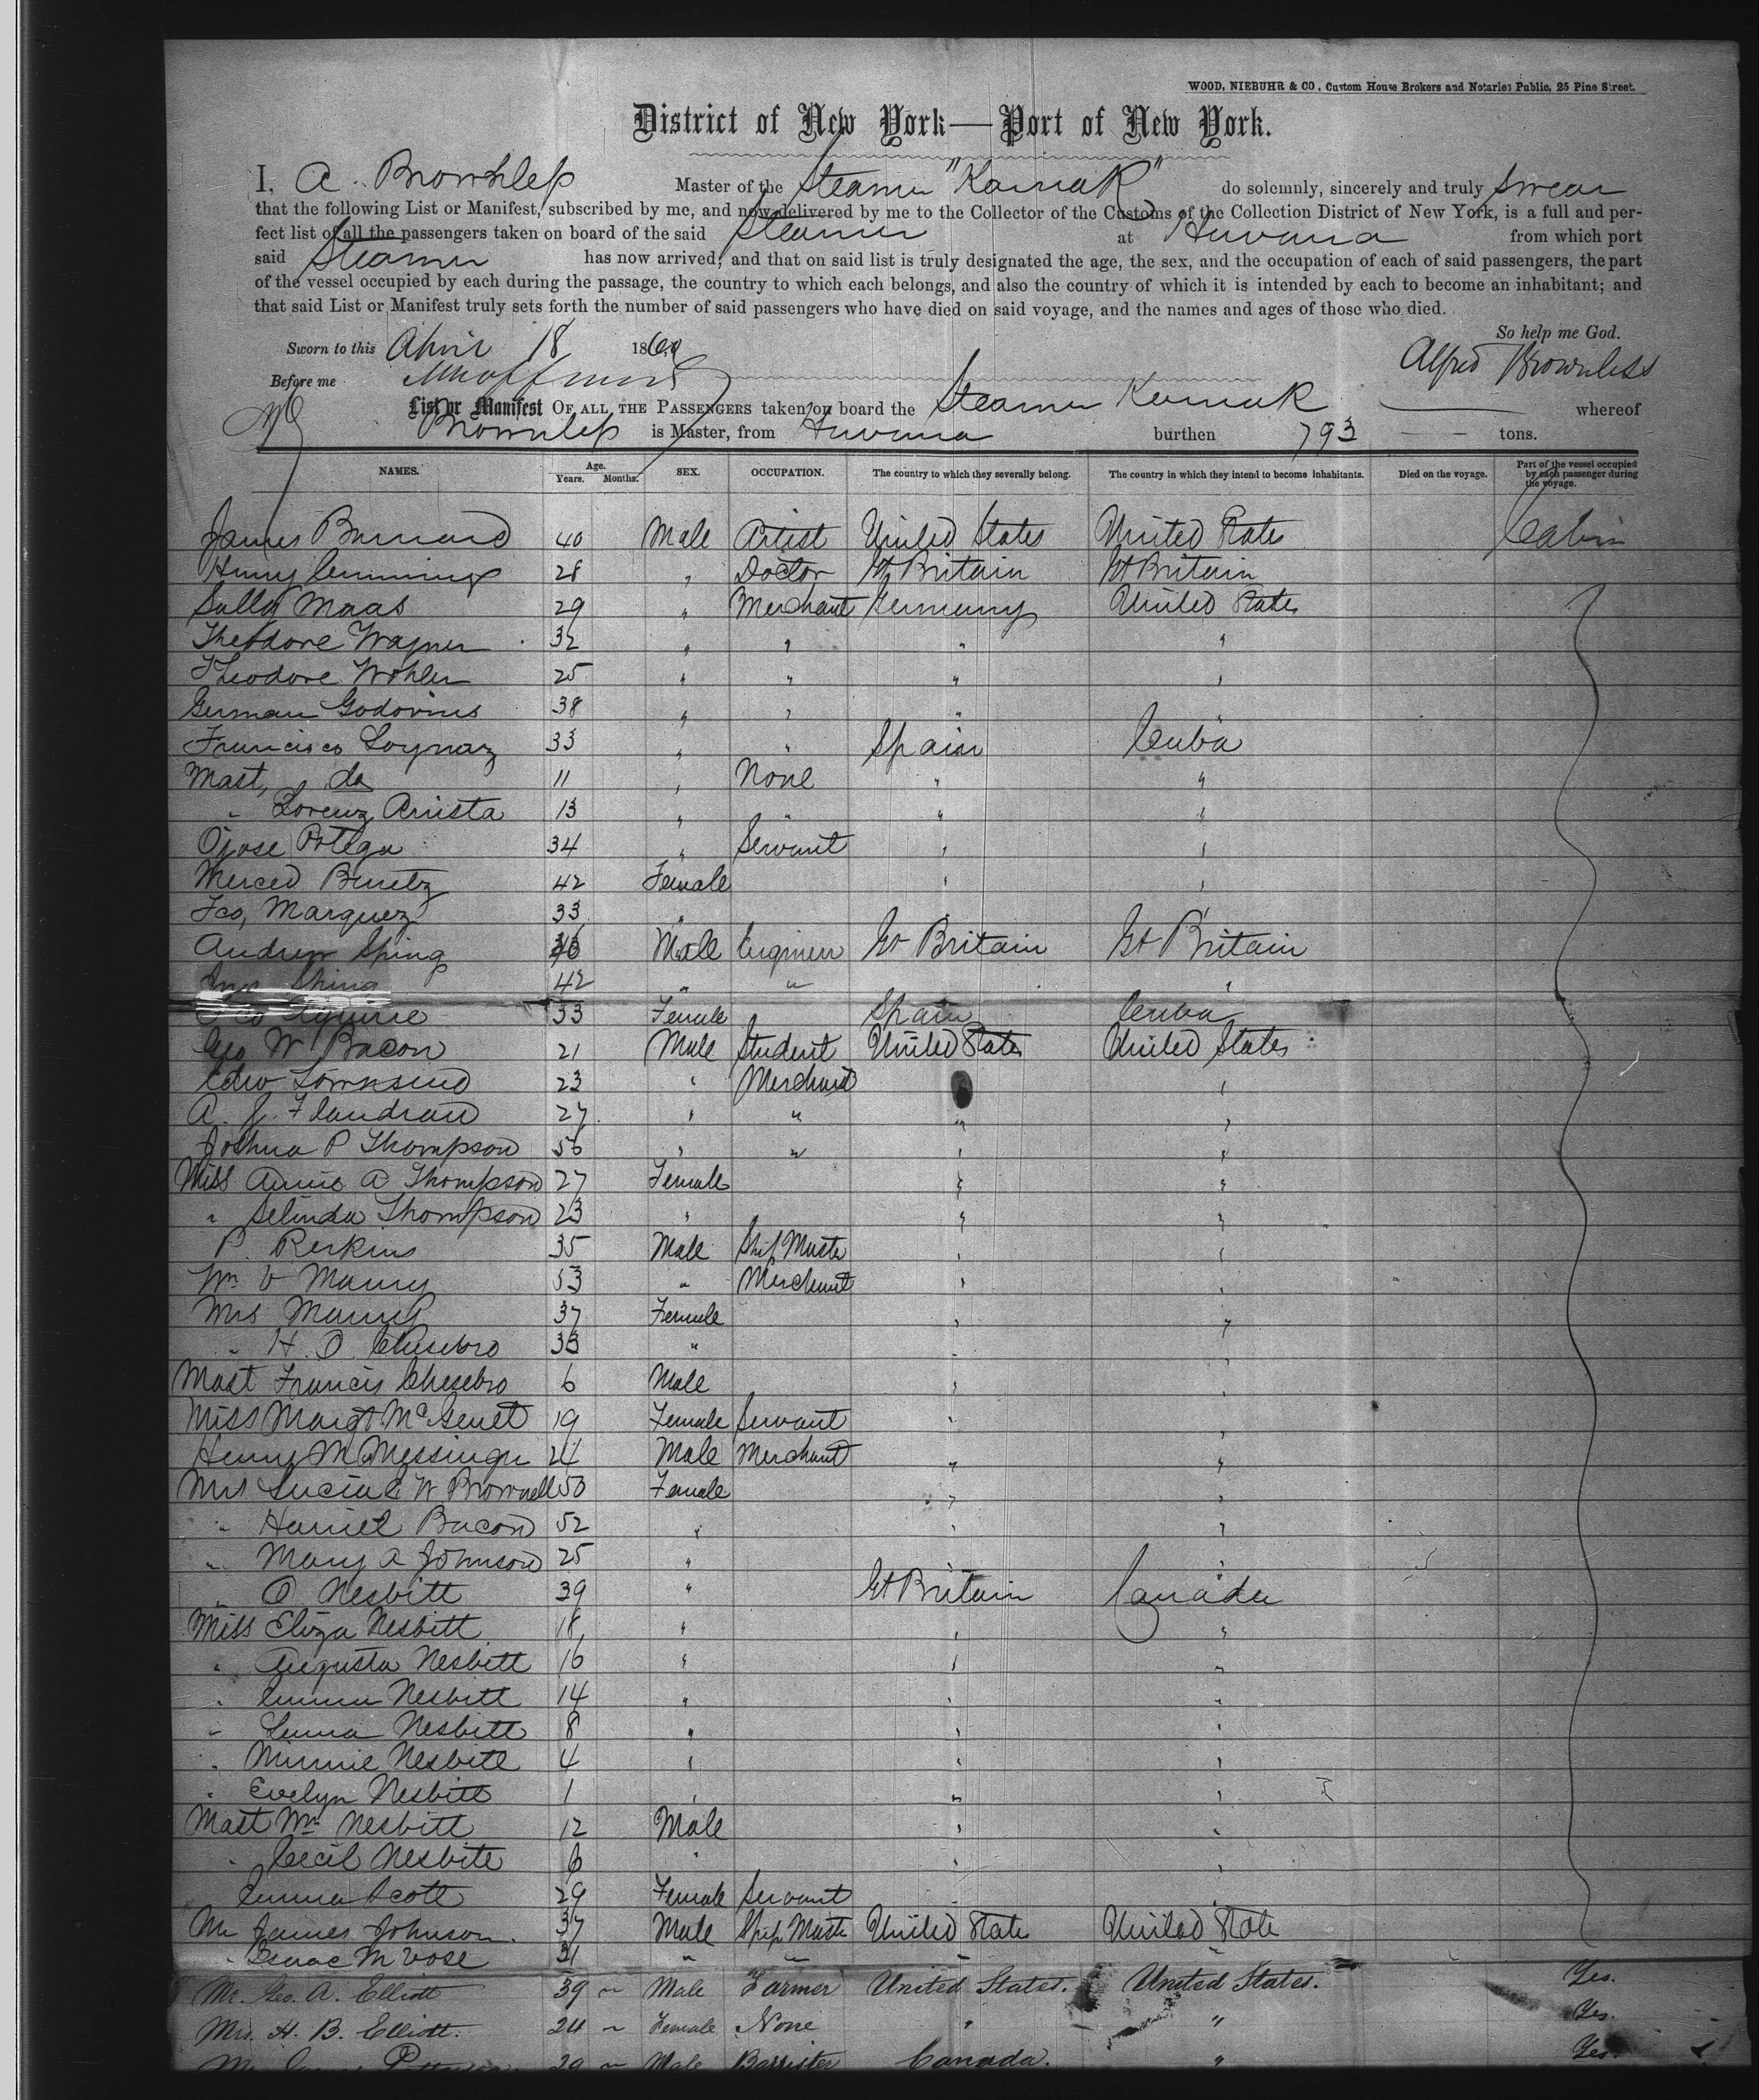 WOOD, NIEBUHR & CO., Custom House Brokers and Notaries Public, 25 Pine Street.
District of New York—Port of New York.
I, A. Brownless Master of the Steamer "Karnak" do solemnly, sincerely and truly swear
that the following List or Manifest, subscribed by me, and now delivered by me to the Collector of the Customs of the Collection District of New York, is a full and per-
fect list of all the passengers taken on board of the said Steamer at Havana from which port
said Steamer has now arrived; and that on said list is truly designated the age, the sex, and the occupation of each of said passengers, the part
of the vessel occupied by each during the passage, the country to which each belongs, and also the country of which it is intended by each to become an inhabitant; and
that said List or Manifest truly sets forth the number of said passengers who have died on said voyage, and the names and ages of those who died.
So help me God.
Sworn to this April 18 186
Alfred Brownless
Before me
List or Manifest OF ALL THE PASSENGERS taken on board the Steamer Karnak whereof
Brownless is Master, from Havana burthen 793 tons.
NAMES. Age. Years. Months. SEX. OCCUPATION. The country to which they severally belong. The country in which they intend to become inhabitants. Died on the voyage. Part of the vessel occupied by each passenger during the voyage.
James Barnard 40 Male Artist United States United States Cabin
Henry Cummings 28 " Doctor Gt Britain Gt Britain
Sally Maas 29 " Merchant Germany United States
Theodore Wagner 32 " " " "
Theodore Wohler 25 " " " "
German Godovius 38 " " " "
Francisco Loynaz 33 " " Spain Cuba
Mast, " do 11 " None " "
" Lorenz Arista 13 " " " "
Ojose Ortega 34 " Servant " "
Merced Benitz 42 Female " "
Fco, Marquez 33 " " "
Andrew Sping Male Engineer Gt Britain Gt Britain
Sping 42 " " "
Aguirre 33 Female Spain Cuba
Geo W Bacon 21 Male Student United States United States
Edw Townsend 23 " Merchant "
A. J. Flandrau 27 " " " "
Joshua P Thompson 56 " " " "
Miss Annie A Thompson 27 Female " "
" Selinda Thompson 23 " " "
P. Perkins 35 Male Ship Master " "
Wm V Many 53 " Merchant " "
Mrs Many 37 Female " "
" H. O Chesebro 33 " " "
Mast Francis Chesebro 6 Male " "
Miss Margt McGenet 19 Female Servant " "
Henry M Messinger 24 Male Merchant " "
Mrs Lucia E W Brownell 50 Female " "
" Harriet Bacon 52 " " "
" Mary A Johnson 25 " " "
" O Nesbitt 39 " Gt Britain Canada
Miss Eliza Nesbitt 18 " " "
" Augusta Nesbitt 16 " " "
" Emma Nesbitt 14 " " "
" Nesbitt 8 " " "
" Minnie Nesbitt 4 " " "
" Evelyn Nesbitt 1 " " "
Mast Wm Nesbitt 12 Male " "
" Cecil Nesbitt 6 " " "
Emma Scott 29 Female Servant " "
Mr James Johnson 37 Male Ship Master United State United State
" Isaac M Vose 31 " " " "
Mr. Geo. A. Elliott 39 " Male Farmer United States. United States. Yes.
Mrs. H. B. Elliott. 24 " Female None " " Yes.
Mr 29 " Male Barrister Canada. " Yes.